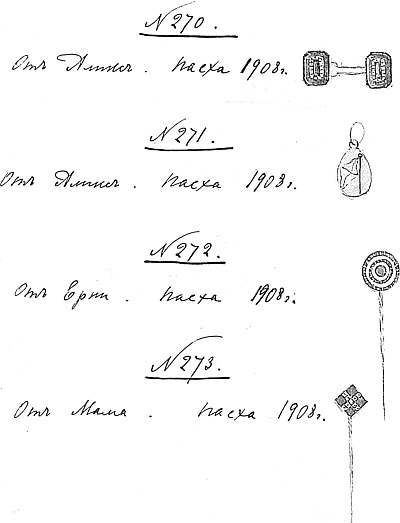 № 270.
Отъ Аликсъ. Пасха 1908г.
№ 271.
Отъ Аликсъ. Пасха 1908г.
№ 272.
Отъ Ерни. Пасха 1908г.
№ 273.
Отъ Мама. Пасха 1908г.